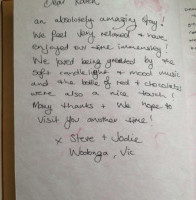 Dear
an absolutely amazing stay!
We feel very relaxed & have
enjoyed our time immensely!
We loved being greeted by the
soft candlelight & mood music
and the bottle of red & chocolates
were also a nice touch!
Many thanks & We hope to
Visit you another time!
x Steve & Jodie
Wodonga, Vic